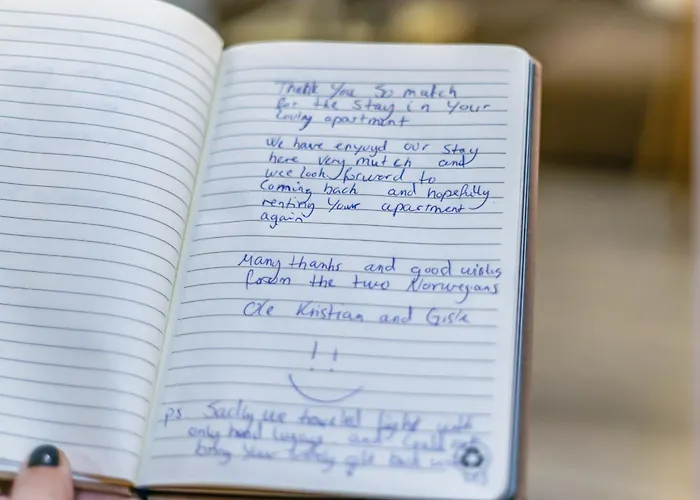 Thank You So match
for the stay in Your
loving apartment
We have enyoyd our Stay
here very mutch and
wee look forword to
Coming back and hopefully
renting Your apartment
again
Many thanks and good wishes
from the two Norwegans
Ole Kristian and Gisle
!!
ps Sadly we traveled light with
only hand lugage and
bring Your gift back